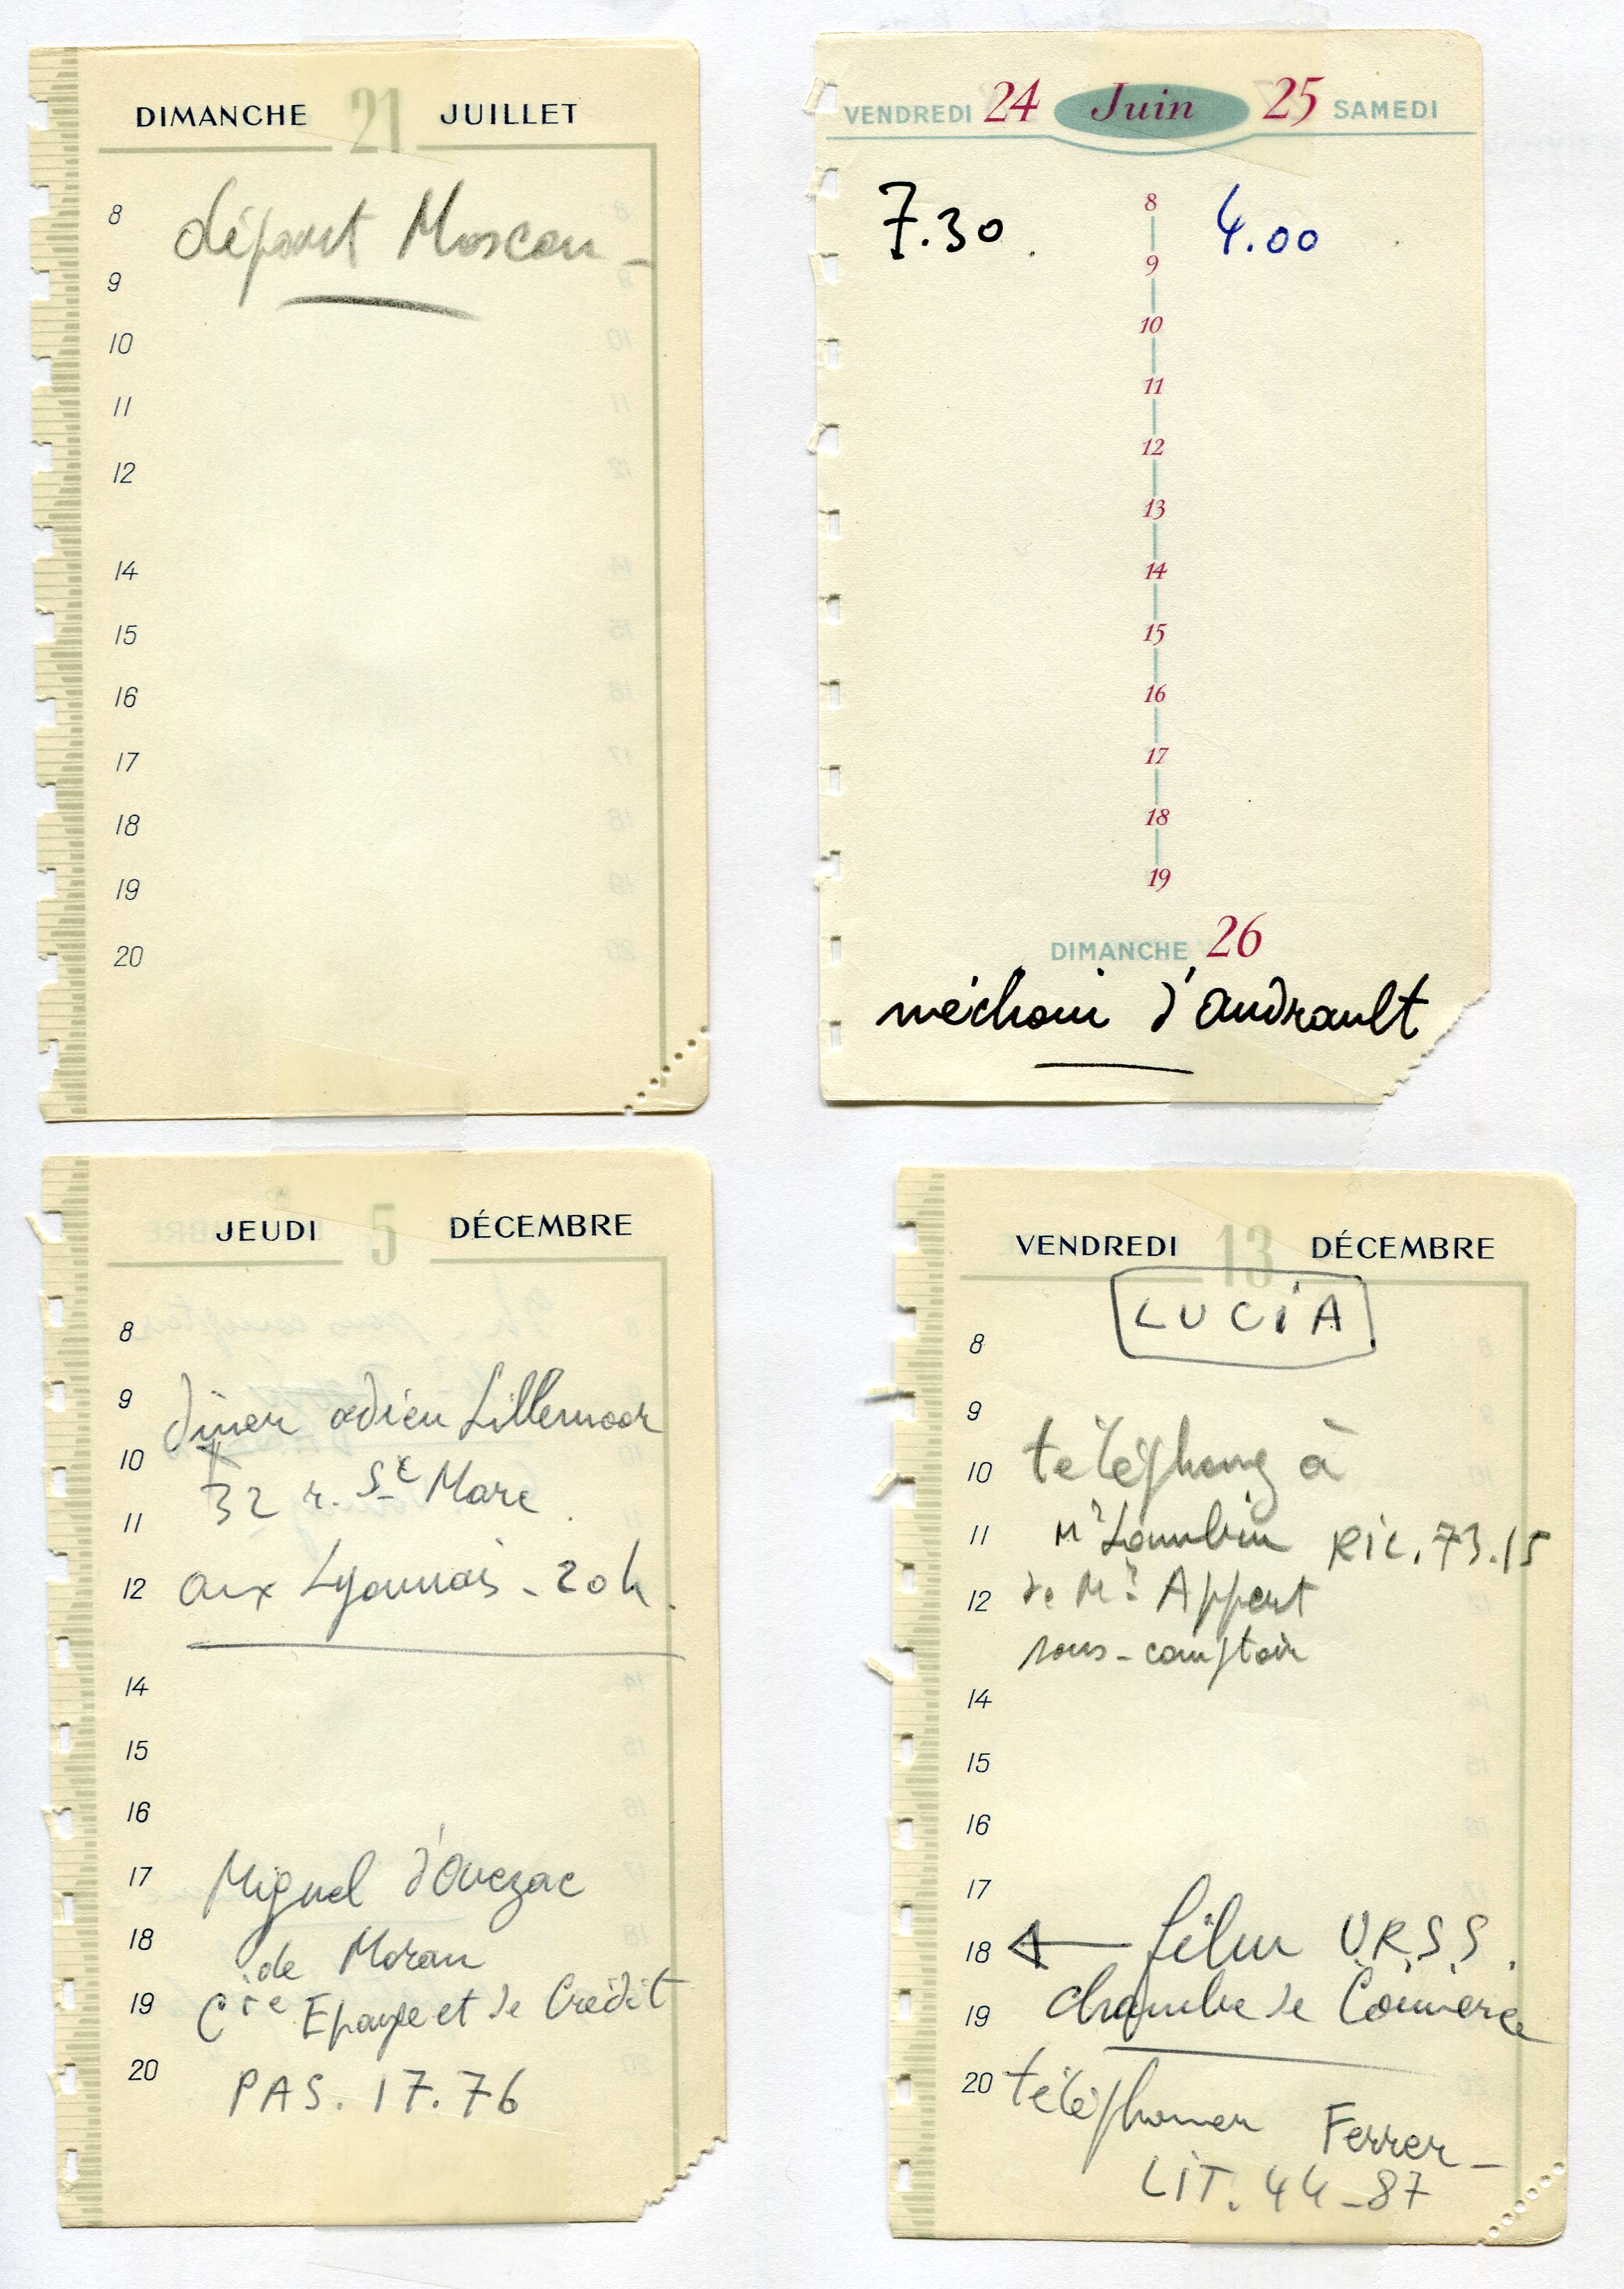 DIMANCHE 21 JUILLET
8
départ Moscou -
9
10
11
12
14
15
16
17
18
19
20
VENDREDI 24 Juin 25 SAMEDI
7.30. 8 4.00
9
10
11
12
13
14
15
16
17
18
19
DIMANCHE 26
méchoui d'Andrault
JEUDI 5 DÉCEMBRE
8
9 dîner adieu Lillemoor
10 32 r. St Marc
11
12 aux Lyonnais - 20h.
14
15
16
17 Miguel d'Ouezac
18 de Moran
19 Cie Epargne et de Crédit
20
PAS. 17.76
VENDREDI 13 DÉCEMBRE
LUCIA
8
9
10 téléphoner à
11 Mr Lambin RIC. 73.15
12 de Mr Appert
sous-comptoir
14
15
16
17
18 ← film U.R.S.S.
19 chambre de Commerce
20 téléphoner Ferrer -
LIT. 44-87